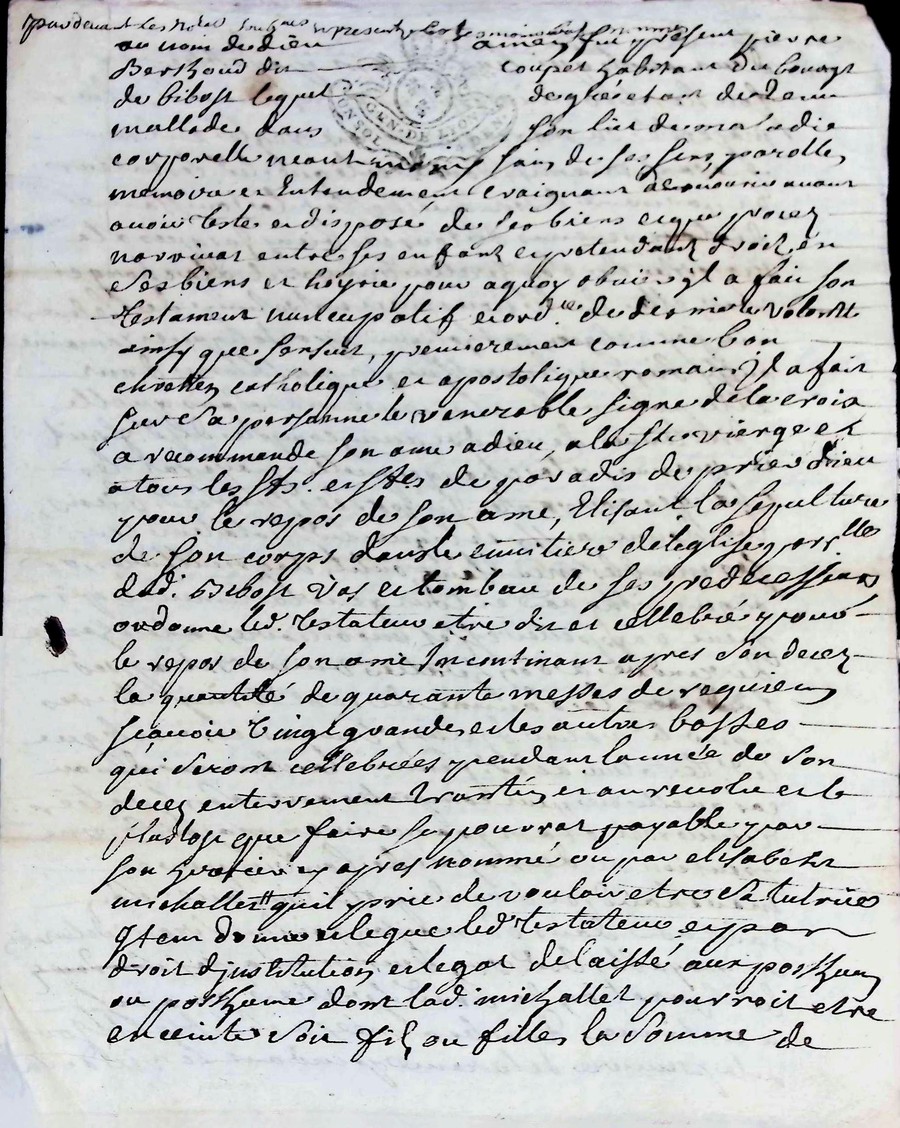 pardevant les Notes soubnes et presents
au nom de dieu amen fut present pierre
Berthoud dit coupet habitant du bourgt
de bibost lequel de gré estant detenu
mallade dans son lict de maladie
corporelle neantmoins sain de ses sens, parolle,
memoire et Entendement craignant de mourir avant
avoir testé et disposé de ses biens et que procez
narrivat entre ses enfants et pretendants droit en
ses biens et hoyrie pour a quoy obvier il a fait son
testament nuncupatif et ord.re de derniere volonté
ainsy que sensuit, premierement comme bon
chretien catholique et apostolique romain jl a fait
sur sa personne le venerable signe de la croix
a recommandé son ame a dieu, a la ste vierge et
a tous les sts. et stes de paradis de prier dieu
pour le repos de son ame, Elisant la sepulture
de son corps dans le cimitiere de leglise parlle
dud. Bibost vas et tombeau de ses predecesseurs
ordonne led. testateur etre dit et cellebré pour
le repos de son ame Incontinant apres son decez
la quantité de quarante messes de requiem
scavoir vingt grandes et les autres basses
qui seront cellebrées pendant lannée de son
decez enterrement trantin et au revolu et le
plustost que faire se pourrat payable par
son heritier cy apres nommé ou par elisabeth
michallet quil prie de vouloir etre sa tutrice
Jtem donne et legue led. testateur et par
droit djnstitution et legat delaissé aux posthum
ou posthume dont lad. michallet pourroit etre
enceinte soit fils ou filles la somme de